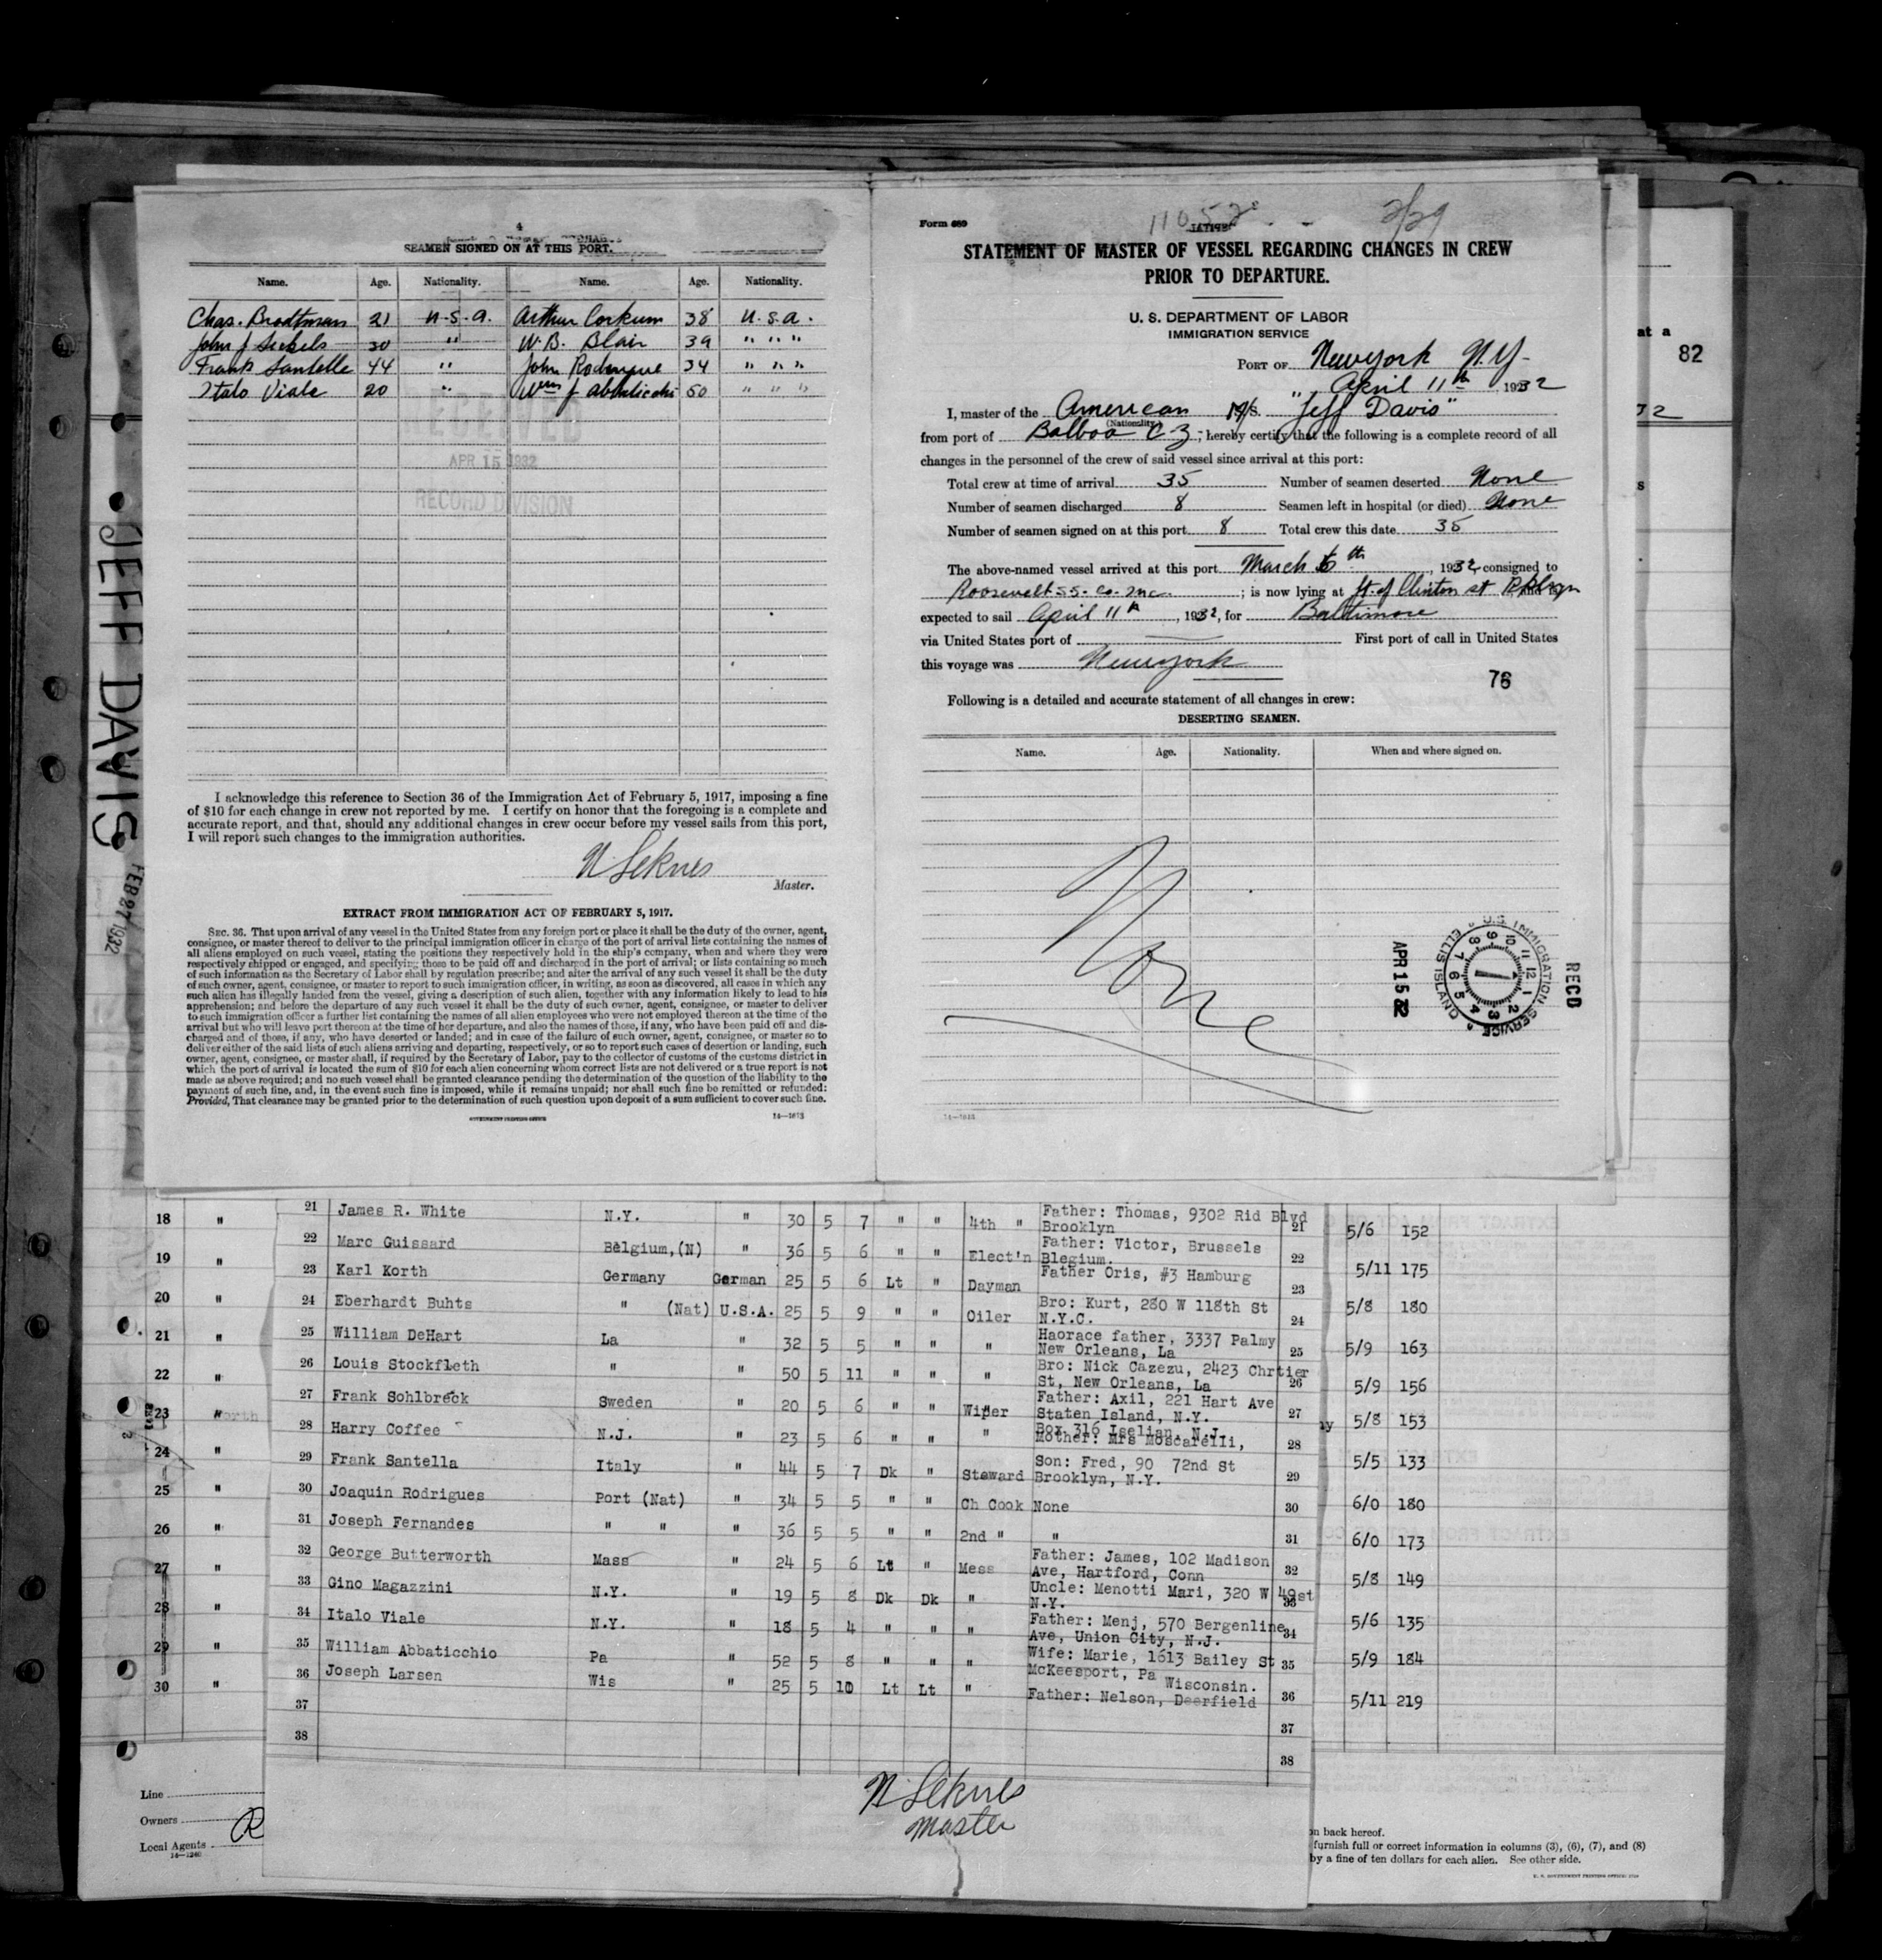 4
SEAMEN SIGNED ON AT THIS PORT.
Name. Age. Nationality. Name. Age. Nationality.
Chas. Brodtman 21 U.S.A. Arthur Corkum 38 U.S.A.
John J Sickels 30 " W.B. Blair 39 " " "
Frank Santelle 44 " John Rodrigue 34 " " "
Italo Viale 20 " Wm J Abbaticchi 50 " " "
RECEIVED
APR 15 1932
RECORD DIVISION
I acknowledge this reference to Section 36 of the Immigration Act of February 5, 1917, imposing a fine
of $10 for each change in crew not reported by me. I certify on honor that the foregoing is a complete and
accurate report, and that, should any additional changes in crew occur before my vessel sails from this port,
I will report such changes to the immigration authorities.
N Seknes
Master.
EXTRACT FROM IMMIGRATION ACT OF FEBRUARY 5, 1917.
SEC. 36. That upon arrival of any vessel in the United States from any foreign port or place it shall be the duty of the owner, agent,
consignee, or master thereof to deliver to the principal immigration officer in charge of the port of arrival lists containing the names of
all aliens employed on such vessel, stating the positions they respectively hold in the ship's company, when and where they were
respectively shipped or engaged, and specifying those to be paid off and discharged in the port of arrival; or lists containing so much
of such information as the Secretary of Labor shall by regulation prescribe; and after the arrival of any such vessel it shall be the duty
of such owner, agent, consignee, or master to report to such immigration officer, in writing, as soon as discovered, all cases in which any
such alien has illegally landed from the vessel, giving a description of such alien, together with any information likely to lead to his
apprehension; and before the departure of any such vessel it shall be the duty of such owner, agent, consignee, or master to deliver
to such immigration officer a further list containing the names of all alien employees who were not employed thereon at the time of the
arrival but who will leave port thereon at the time of her departure, and also the names of those, if any, who have been paid off and dis-
charged and of those, if any, who have deserted or landed; and in case of the failure of such owner, agent, consignee, or master so to
deliver either of the said lists of such aliens arriving and departing, respectively, or so to report such cases of desertion or landing, such
owner, agent, consignee, or master shall, if required by the Secretary of Labor, pay to the collector of customs of the customs district in
which the port of arrival is located the sum of $10 for each alien concerning whom correct lists are not delivered or a true report is not
made as above required; and no such vessel shall be granted clearance pending the determination of the question of the liability to the
payment of such fine, and, in the event such fine is imposed, while it remains unpaid; nor shall such fine be remitted or refunded:
Provided, That clearance may be granted prior to the determination of such question upon deposit of a sum sufficient to cover such fine.
GOVERNMENT PRINTING OFFICE 14—1813
JEFF DAVIS
FEB 27 1932
Form 689
2/29
STATEMENT OF MASTER OF VESSEL REGARDING CHANGES IN CREW
PRIOR TO DEPARTURE.
U. S. DEPARTMENT OF LABOR
IMMIGRATION SERVICE
PORT OF New York N.Y.
April 11th, 1932
I, master of the American M/S. "Jeff Davis"
(Nationality)
from port of Balboa C Z; hereby certify that the following is a complete record of all
changes in the personnel of the crew of said vessel since arrival at this port:
Total crew at time of arrival 35 Number of seamen deserted None
Number of seamen discharged 8 Seamen left in hospital (or died) None
Number of seamen signed on at this port 8 Total crew this date 35
The above-named vessel arrived at this port March 6th, 1932, consigned to
Roosevelt S.S. Co. Inc.; is now lying at ft. of Clinton st Bklyn
expected to sail April 11th, 1932, for Baltimore
via United States port of First port of call in United States
this voyage was New York
76
Following is a detailed and accurate statement of all changes in crew:
DESERTING SEAMEN.
Name. Age. Nationality. When and where signed on.
None
U.S. IMMIGRATION SERVICE ELLIS ISLAND
1 2 3 4 5 6 7 8 9 10 11 12
REC'D
APR 15 32
at a
82
21 James R. White N.Y. " 30 5 7 " " 4th " Father: Thomas, 9302 Rid Blvd Brooklyn 21
22 Marc Guissard Belgium,(N) " 36 5 6 " " Elect'n Father: Victor, Brussels Blegium. 22
23 Karl Korth Germany German 25 5 6 Lt " Dayman Father Oris, #3 Hamburg 23
24 Eberhardt Buhts " (Nat) U.S.A. 25 5 9 " " Oiler Bro: Kurt, 280 W 118th St N.Y.C. 24
25 William DeHart La " 32 5 5 " " " Haorace father, 3337 Palmy New Orleans, La 25
26 Louis Stockfleth " " 50 5 11 " " " Bro: Nick Cazezu, 2423 Chrtier St, New Orleans, La 26
27 Frank Sohlbreck Sweden " 20 5 6 " " Wiper Father: Axil, 221 Hart Ave Staten Island, N.Y. 27
28 Harry Coffee N.J. " 23 5 6 " " " Box 316 Iselian, N.J. Mother: Mrs Moscarelli, 28
29 Frank Santella Italy " 44 5 7 Dk " Steward Son: Fred, 90 72nd St Brooklyn, N.Y. 29
30 Joaquin Rodrigues Port (Nat) " 34 5 5 " " Ch Cook None 30
31 Joseph Fernandes " " " 36 5 5 " " 2nd " " 31
32 George Butterworth Mass " 24 5 6 Lt " Mess Father: James, 102 Madison Ave, Hartford, Conn 32
33 Gino Magazzini N.Y. " 19 5 8 Dk Dk " Uncle: Menotti Mari, 320 W 49st N.Y. 33
34 Italo Viale N.Y. " 18 5 4 " " " Father: Menj, 570 Bergenline Ave, Union City, N.J. 34
35 William Abbaticchio Pa " 52 5 8 " " " Wife: Marie, 1613 Bailey St McKeesport, Pa 35
36 Joseph Larsen Wis " 25 5 10 Lt Lt " Wisconsin. Father: Nelson, Deerfield 36
37 37
38 38
N Seknes
Master
18 " 5/6 152
19 " 5/11 175
20 " 5/8 180
21 " 5/9 163
22 " 5/9 156
23 " 5/8 153
24 5/5 133
25 " 6/0 180
26 " 6/0 173
27 " 5/8 149
28 " 5/6 135
29 " 5/9 184
30 " 5/11 219
Line
Owners R
Local Agents
14—1240
on back hereof.
furnish full or correct information in columns (3), (6), (7), and (8)
by a fine of ten dollars for each alien. See other side.